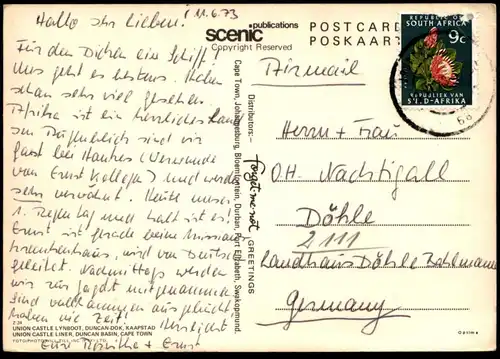 Hallo Ihr Lieben! 11.6.73
Für den Dicken ein Schiff!
Uns geht es bestens. Haben
schon sehr viel gesehen.
Afrika ist ein herrliches Land
sind wir
Gast bei
von Ernst Kollegen) und werden
sehr verwöhnt. Heute unser
1. Regentag und kalt ist es!
Ernst ist gerade
krankenhaus, wird von
geleitet. Nachmittags werden
wir zur Jagd mitgenommen
Sind vollkommen ausgebucht
haben nie Zeit! Herzlichst
Eure + Ernst
UNION CASTLE LYNBOOT, DUNCAN-DOK, KAAPSTAD
UNION CASTLE LINER, DUNCAN BASIN, CAPE TOWN
scenic publications
Copyright Reserved
Distributors:- forget-me-not GREETINGS
Cape Town, Johannesburg, Bloemfontein, Durban, Port Elizabeth, Swakopmund.
POSTCARD
POSKAART
REPUBLIC OF
SOUTH AFRICA
9c
REPUBLIEK VAN
SUID-AFRIKA
Airmail
Herrn + Frau
O.H. Nachtigall
Döhle
2111
Landhaus Döhle
Germany
Optima